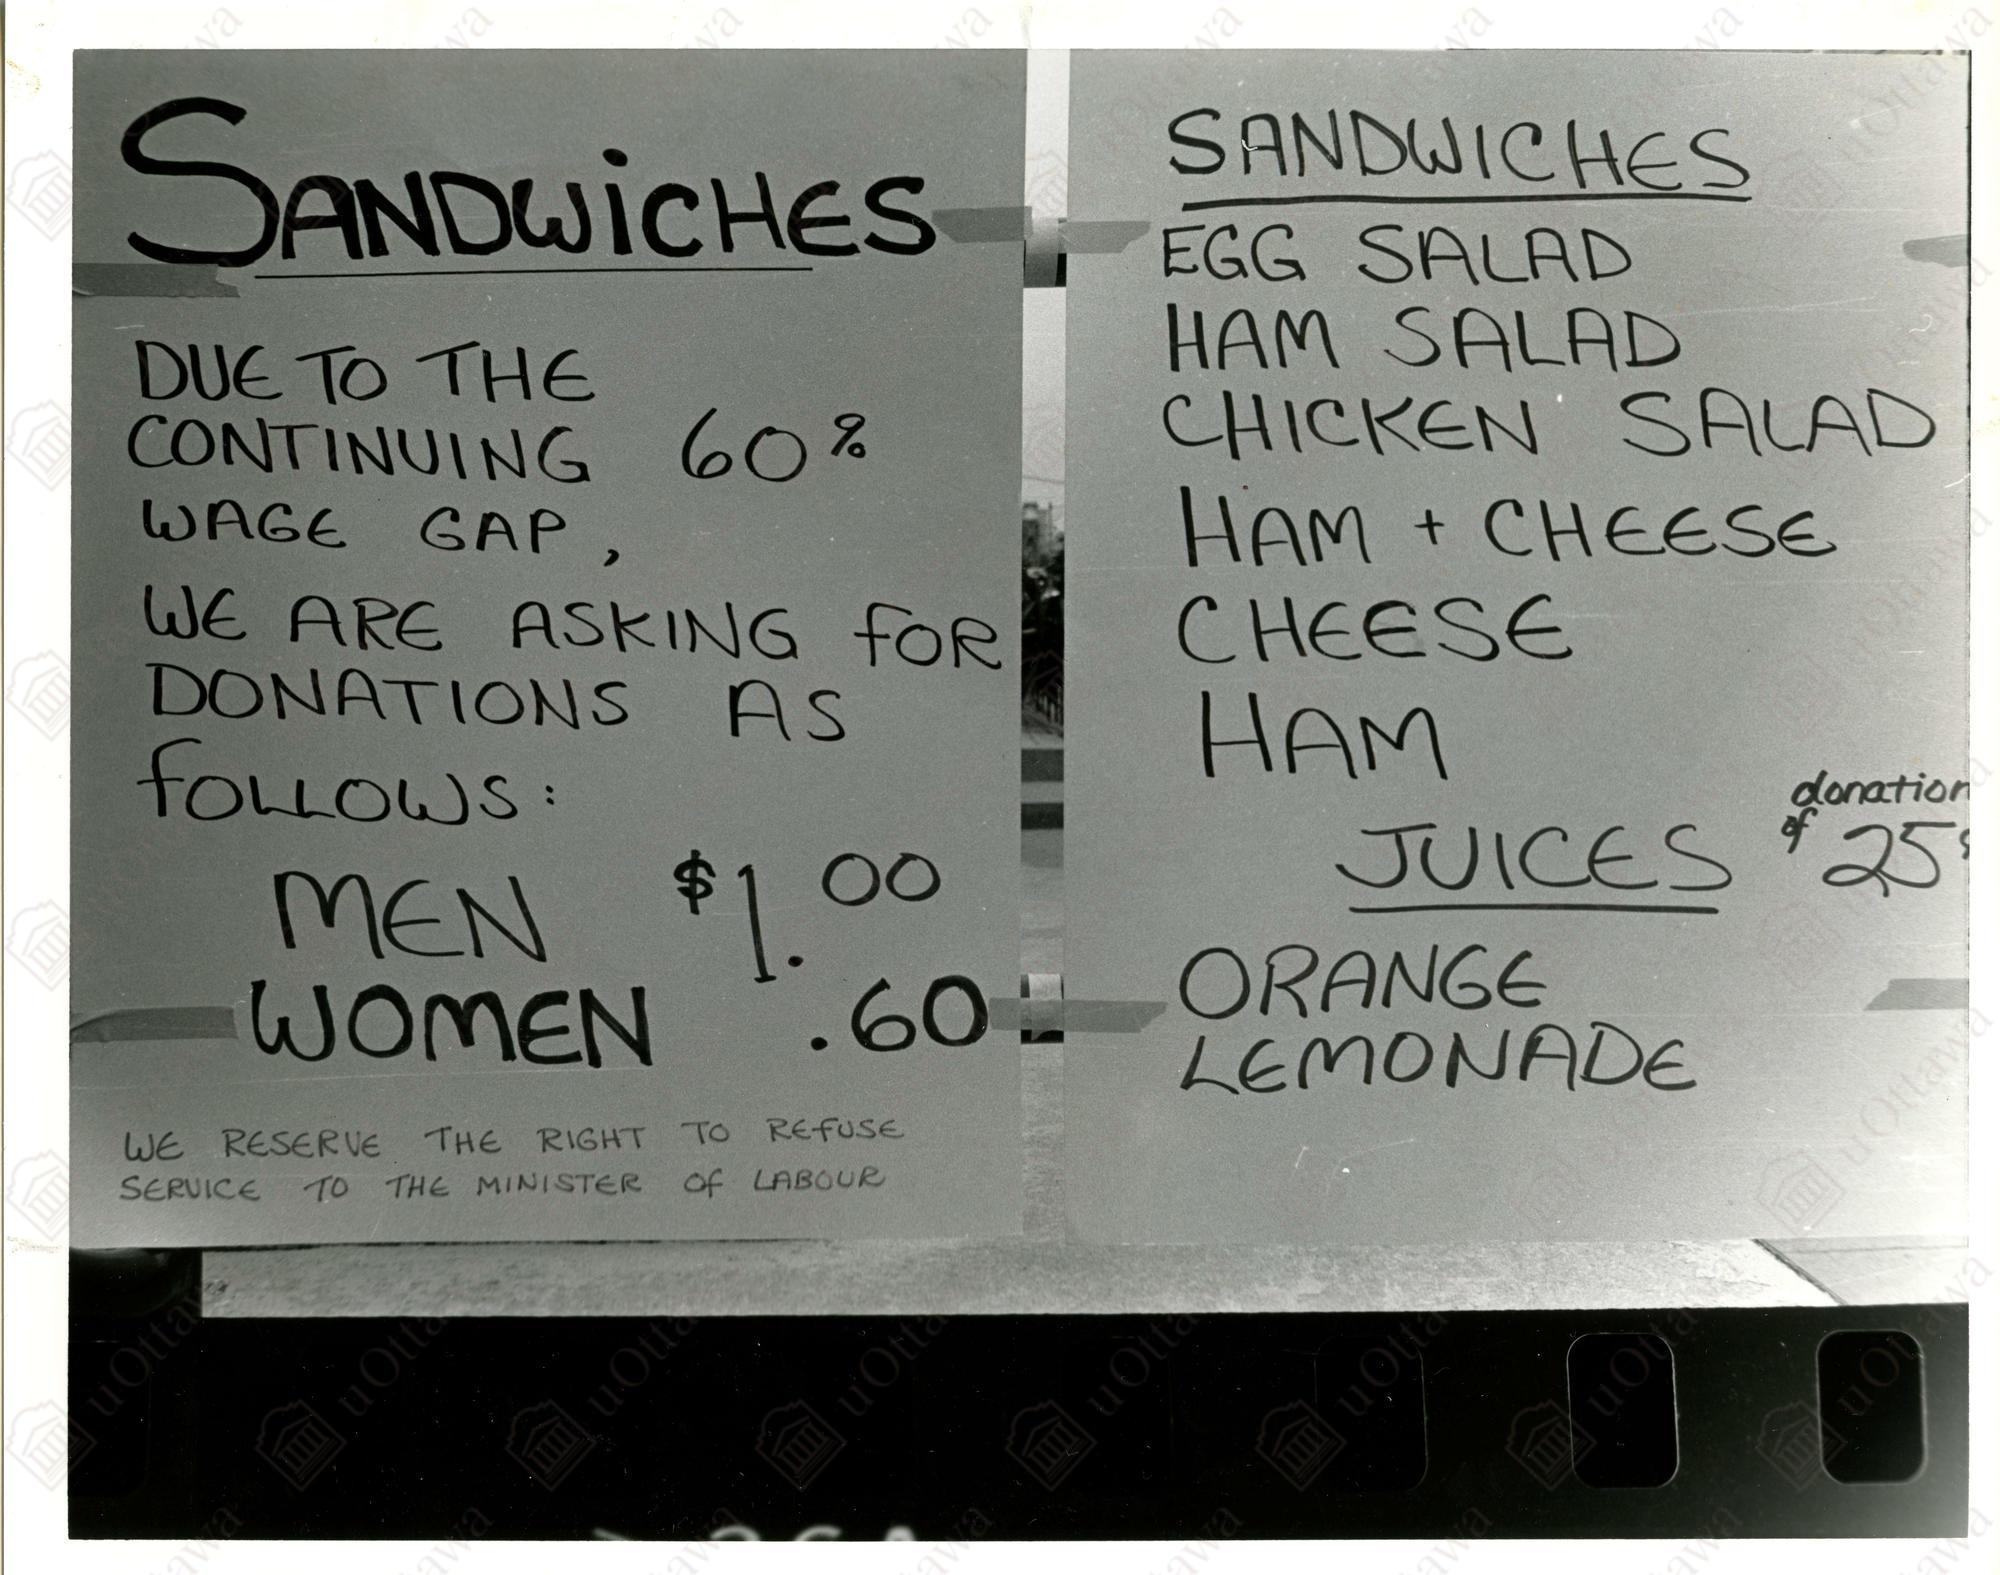 SANDWiCHES
DUE TO THE
CONTINUING 60%
WAGE GAP,
WE ARE ASKING FOR
DONATIONS AS
FOLLOWS:
MEN $1.00
WOMEN .60
WE RESERVE THE RIGHT TO REFUSE
SERVICE TO THE MINISTER OF LABOUR
SANDWICHES
EGG SALAD
HAM SALAD
CHICKEN SALAD
HAM + CHEESE
CHEESE
HAM
JUICES donation of 25¢
ORANGE
LEMONADE
uOttawa